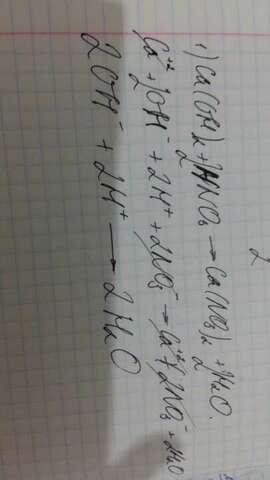 2
1) Ca(OH)₂ + 2HNO₃ → Ca(NO₃)₂ + 2H₂O.
Ca⁺² + 2OH⁻ + 2H⁺ + 2NO₃⁻ → Ca⁺² + 2NO₃⁻ + 2H₂O
2OH⁻ + 2H⁺ → 2H₂O